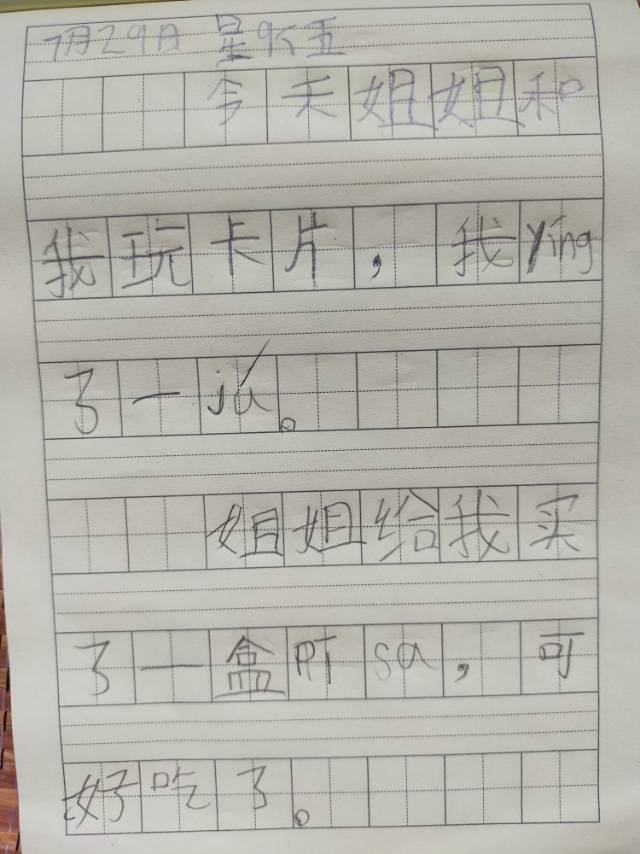 7月29日 星期五
今天姐姐和
我玩卡片，我yíng
了一jú。
姐姐给我买
了一盒pī sà，可
好吃了。